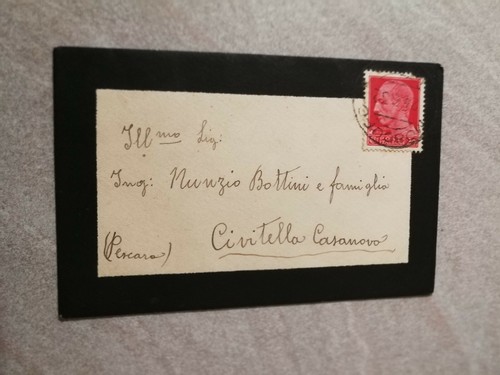 Ill.mo Sig:
Ing: Nunzio Bottini e famiglia
Civitella Casanova
(Pescara)